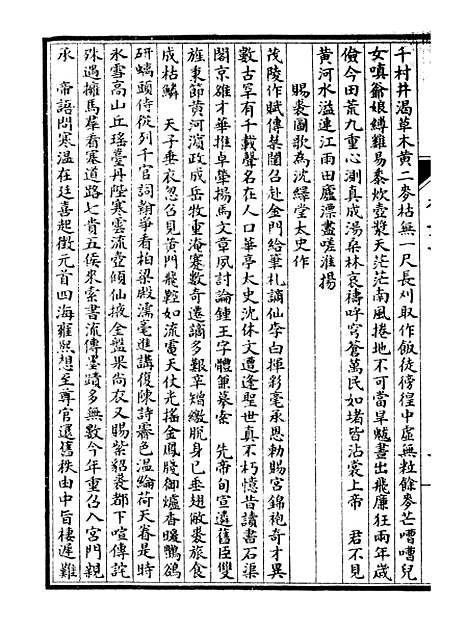 千村井渴草木黄二麥枯無一尺長刈取作飯徒徬徨中虚無粒餘麥芒嘈嘈兒
女嗔爺娘縛難易黍炊壺漿天茫茫南風捲地不可當旱魃晝出飛廉狂兩年歳
儉今田荒九重心測真成湯桑林哀禱呼穹蒼萬民如堵皆沾裳上帝　君不見
黄河水溢連江雨田廬漂盡嗟淮揚
賜裘圖歌為沈繹堂太史作
茂陵作賦傳萊閣召赴金門給筆札謫仙李白揮彩毫承恩勅賜宮錦袍奇才異
數古罕有千載聲名在人口華亭太史沈休文遭逢聖世真不朽憶昔讀書石渠
閣京雒才華推卓犖揚馬文章夙討論鍾王字體兼摹索　先帝旬宣遠舊臣雙
旌秉節黄河濱政成岳牧重淹蹇數奇遠謫多艱辛矰繳脱身已垂翅敝裘旅食
成枯鱗　天子垂衣忽召見黄門飛鞚如流電天仗光搖金鳳牋御爐香暖鸜鵒
研螭頭侍從列千官詞翰爭看柏梁殿濡毫進講復陳詩霽色温綸荷天眷是時
氷雪高山丘瑶臺丹陛寒雲流壺傾仙掖金盤果尚衣又賜紫貂裘都下喧傳詫
殊遇擁馬羣看塞道路七貴五侯來索書流傳墨蹟多無數今年重召入宮門親
承　帝語問寒温在廷喜起徴元首四海雍熙想至尊官還舊秩由中旨棲遲難